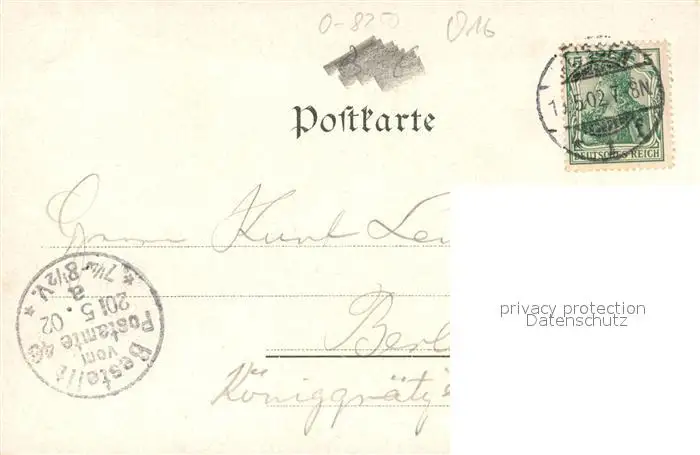 0-8250 016
Postkarte
5.02.7-8N.
DEUTSCHES REICH
Herrn Kurt
Berl
Königgrätz
Bestellt
vom
Postamte 46
20 5. 02
7¼-8½V.
privacy protection
Datenschutz